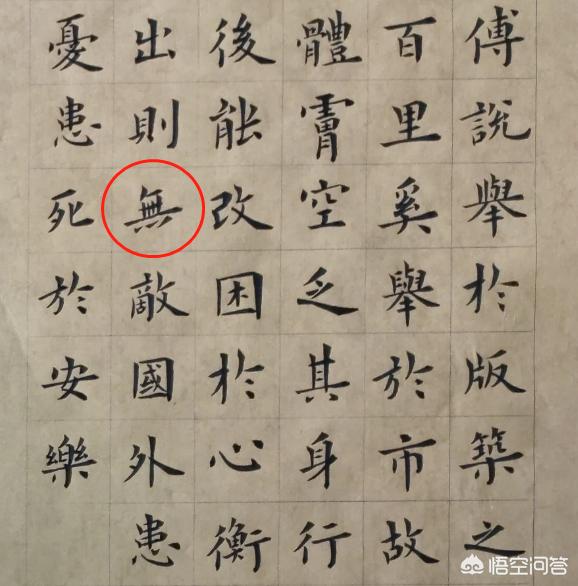 傅說舉於版築之
百里奚舉於市故
體膚空乏其身行
後能改困於心衡
出則無敵國外患
憂患死於安樂
悟空问答